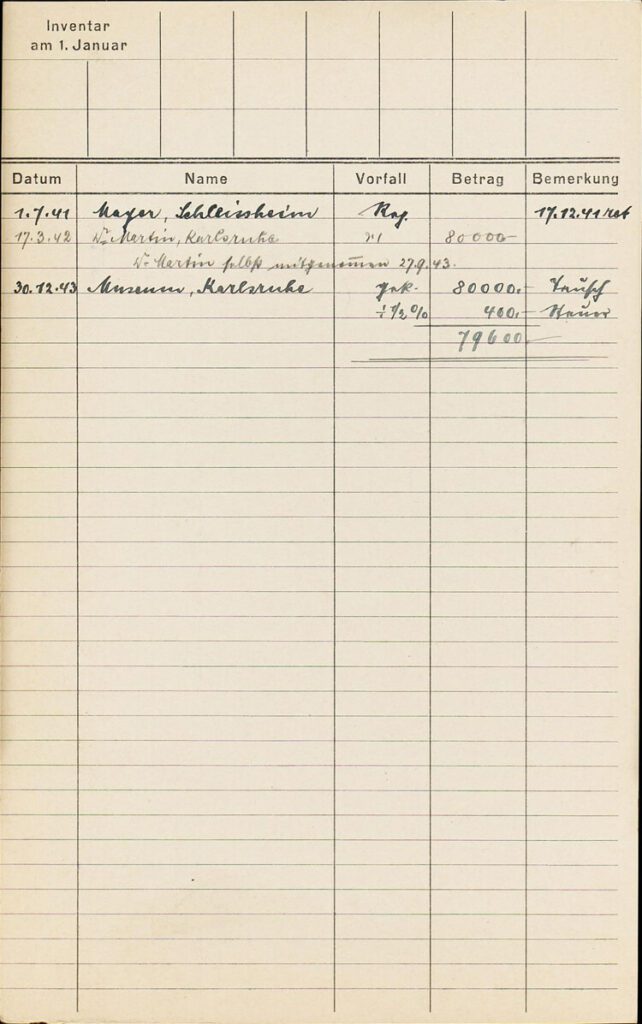 Inventar
am 1. Januar
Datum Name Vorfall Betrag Bemerkung
1.7.41 Mayer, Schleissheim 17.12.41 ret
17.3.42 Dr. Martin, Karlsruhe 80000-
Dr. Martin selbst mitgenommen 27.9.43.
30.12.43 Museum, Karlsruhe gek. 80000.- Tausch
÷ 1/2 % 400.- Steuer
79600.-